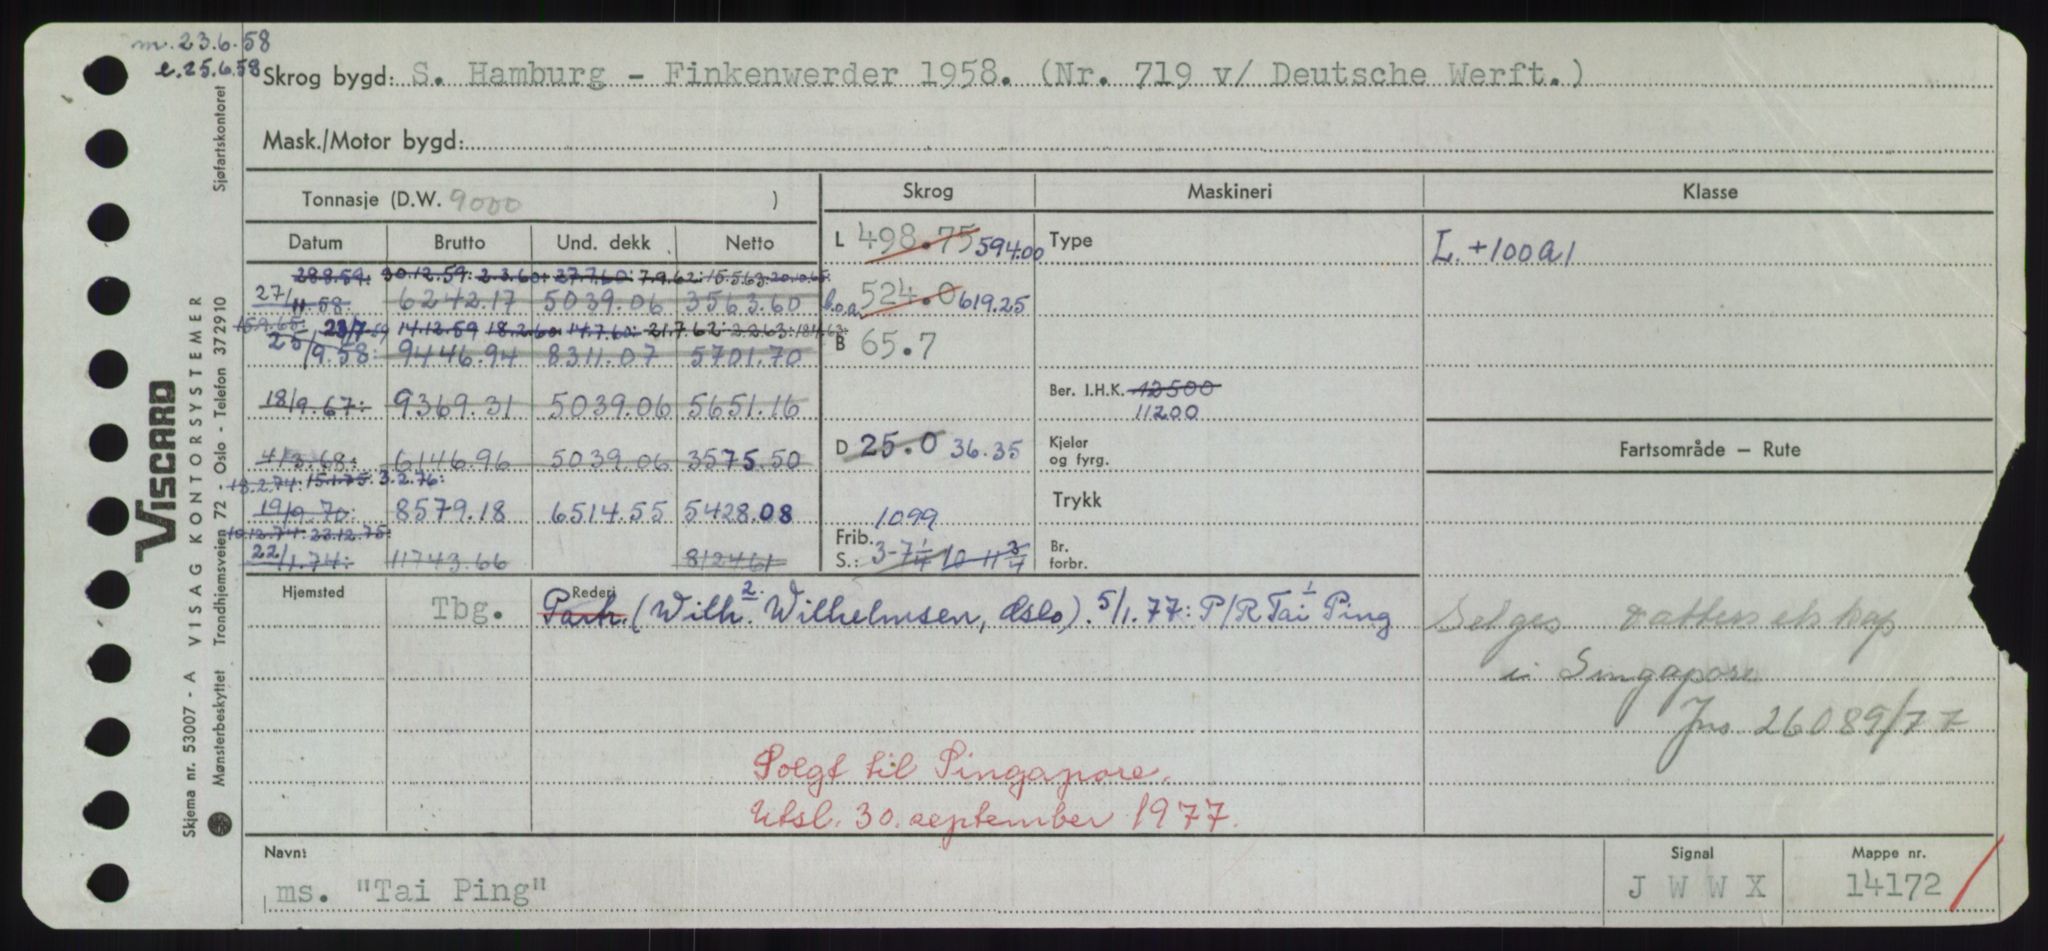 m. 23.6.58
e. 25.6.58
Skrog bygd: S. Hamburg - Finkenwerder 1958. (Nr. 719 v/ Deutsche Werft.)
Mask./Motor bygd:
Tonnasje (D.W. 9000 )
Skrog
Maskineri
Klasse
Datum Brutto Und. dekk Netto
L 498.75 594.00
Type
L. +100A1
28.8.59: 30.12.59: 2.3.60: 27.7.60: 7.9.62: 15.5.63: 20.10.65:
27/11.58: 6242.17 5039.06 3563.60
b.o.a. 524.0 619.25
15.9.65: 23/7.59 14.12.59 18.2.60: 14.7.60: 21.7.62: 2.2.63:
25/9.58: 9446.94 8311.07 5701.70
B 65.7
18/9.67: 9369.31 5039.06 5651.16
Ber. I.H.K. 12500
11200
4/3.68: 6146.96 5039.06 3575.50
D 25.0 36.35
Kjeler og fyrg.
Fartsområde — Rute
18.2.74: 15.1.75: 3.2.76:
19/9.70: 8579.18 6514.55 5428.08
Trykk
1099
10.12.74: 23.12.75:
22/1.74: 11743.66 8124.61
Frib. S.: 3-7 1/4 10-11 3/4
Br. forbr.
Hjemsted
Rederi
Tbg. Part. (Wilh. 2. Wilhelmsen, Oslo). 5/1.77: P/R Tai 1 Ping
Selges
i Singapore
Jns. 26089/77
Solgt til Singapore.
Utsl. 30. september 1977.
Navn: ms. "Tai Ping"
Signal
J W W X
Mappe nr.
14172
VISCARD
VISAG KONTORSYSTEMER
Skjema nr. 53007 - A
Sjøfartskontoret
Mønsterbeskyttet Trondhjemsveien 72 - Oslo - Telefon 372910